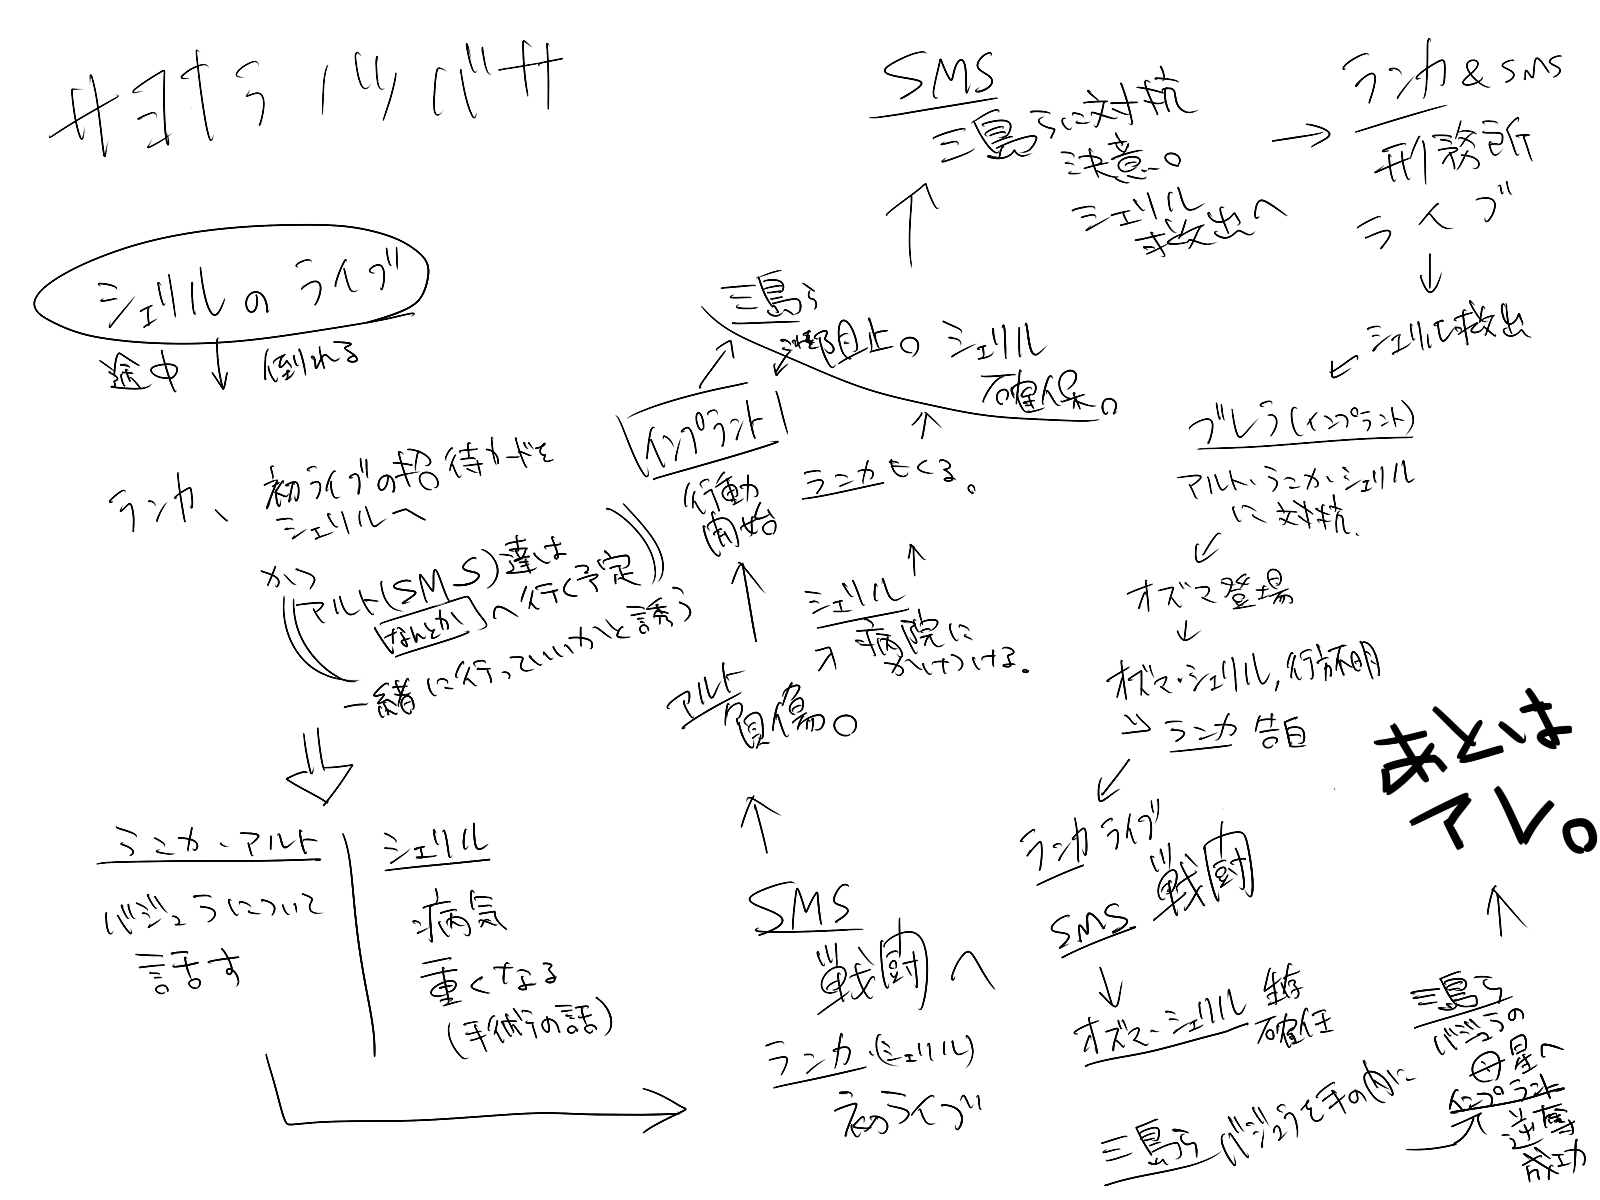 サヨナラノツバサ
シェリルのライブ
途中 ↓ 倒れる
ランカ、初ライブの招待カードを
シェリルへ
かつ
アルト(SMS)達は
なんとかへ行く予定
一緒に行っていいかと誘う
ランカ・アルト
バジュラについて
話す
シェリル
病気
重くなる
(手術の話)
SMS
戦闘へ
ランカ・(シェリル)
初ライブ
アルト
負傷。
シェリル
病院に
かけつける。
ランカもくる。
インプラント
行動
開始
三島ら
阻止。シェリル
確保。
SMS
三島らに対抗
決意。
シェリル
救出へ
→
ランカ&SMS
刑務所
ライブ
↓
シェリル救出
ブレラ(インプラント)
アルト・ランカ・シェリル
に対抗
オズマ登場
オズマ・シェリル,行方不明
ランカ 告白
ランカ ライブ
SMS 戦闘
↓
オズマ・シェリル 生存
確任
三島ら バジュラを手の内に
三島ら
バジュラの
母星へ
インプラント
逆襲
成功
あとは
アレ。